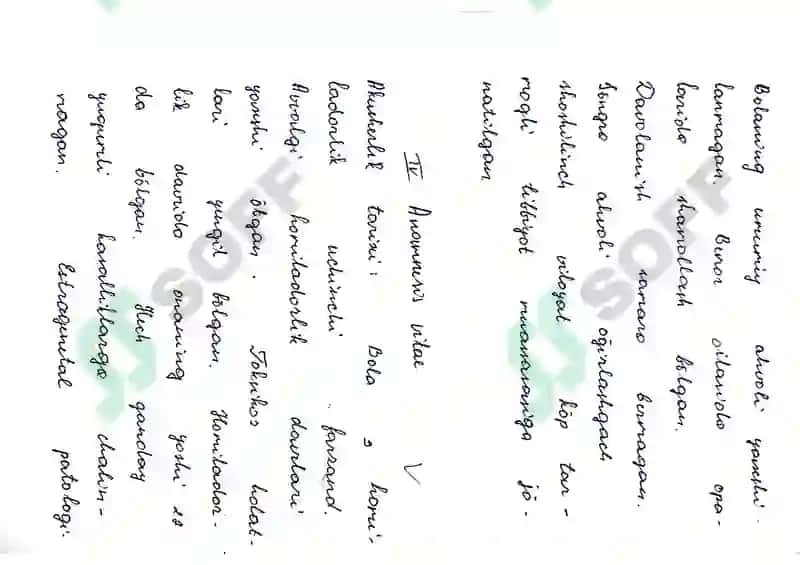 Bolaning umumiy ahvoli yaxshi-
lanmagan. Biror oilasida opa-
larida shamollash bo'lgan.
Davolanish samara bermagan.
So'ngra ahvoli og'irlashgach
shoshilinch viloyat ko'p tar-
moqli tibbiyot muassasasiga jo'-
natilgan
IV Anamnesis vitae
Akusherlik tarixi: Bola 3 homi-
ladorlik uchinchi farzand.
Avvalgi homiladorlik davrlari
yaxshi o'tgan. Toksikos holat-
lari yengil bo'lgan. Homilador-
lik davrida onaning yoshi 28
da bo'lgan. Hech qanday
yuqumli kasalliklarga chalin-
magan. Estragenital patologi-
SOFF
SOFF